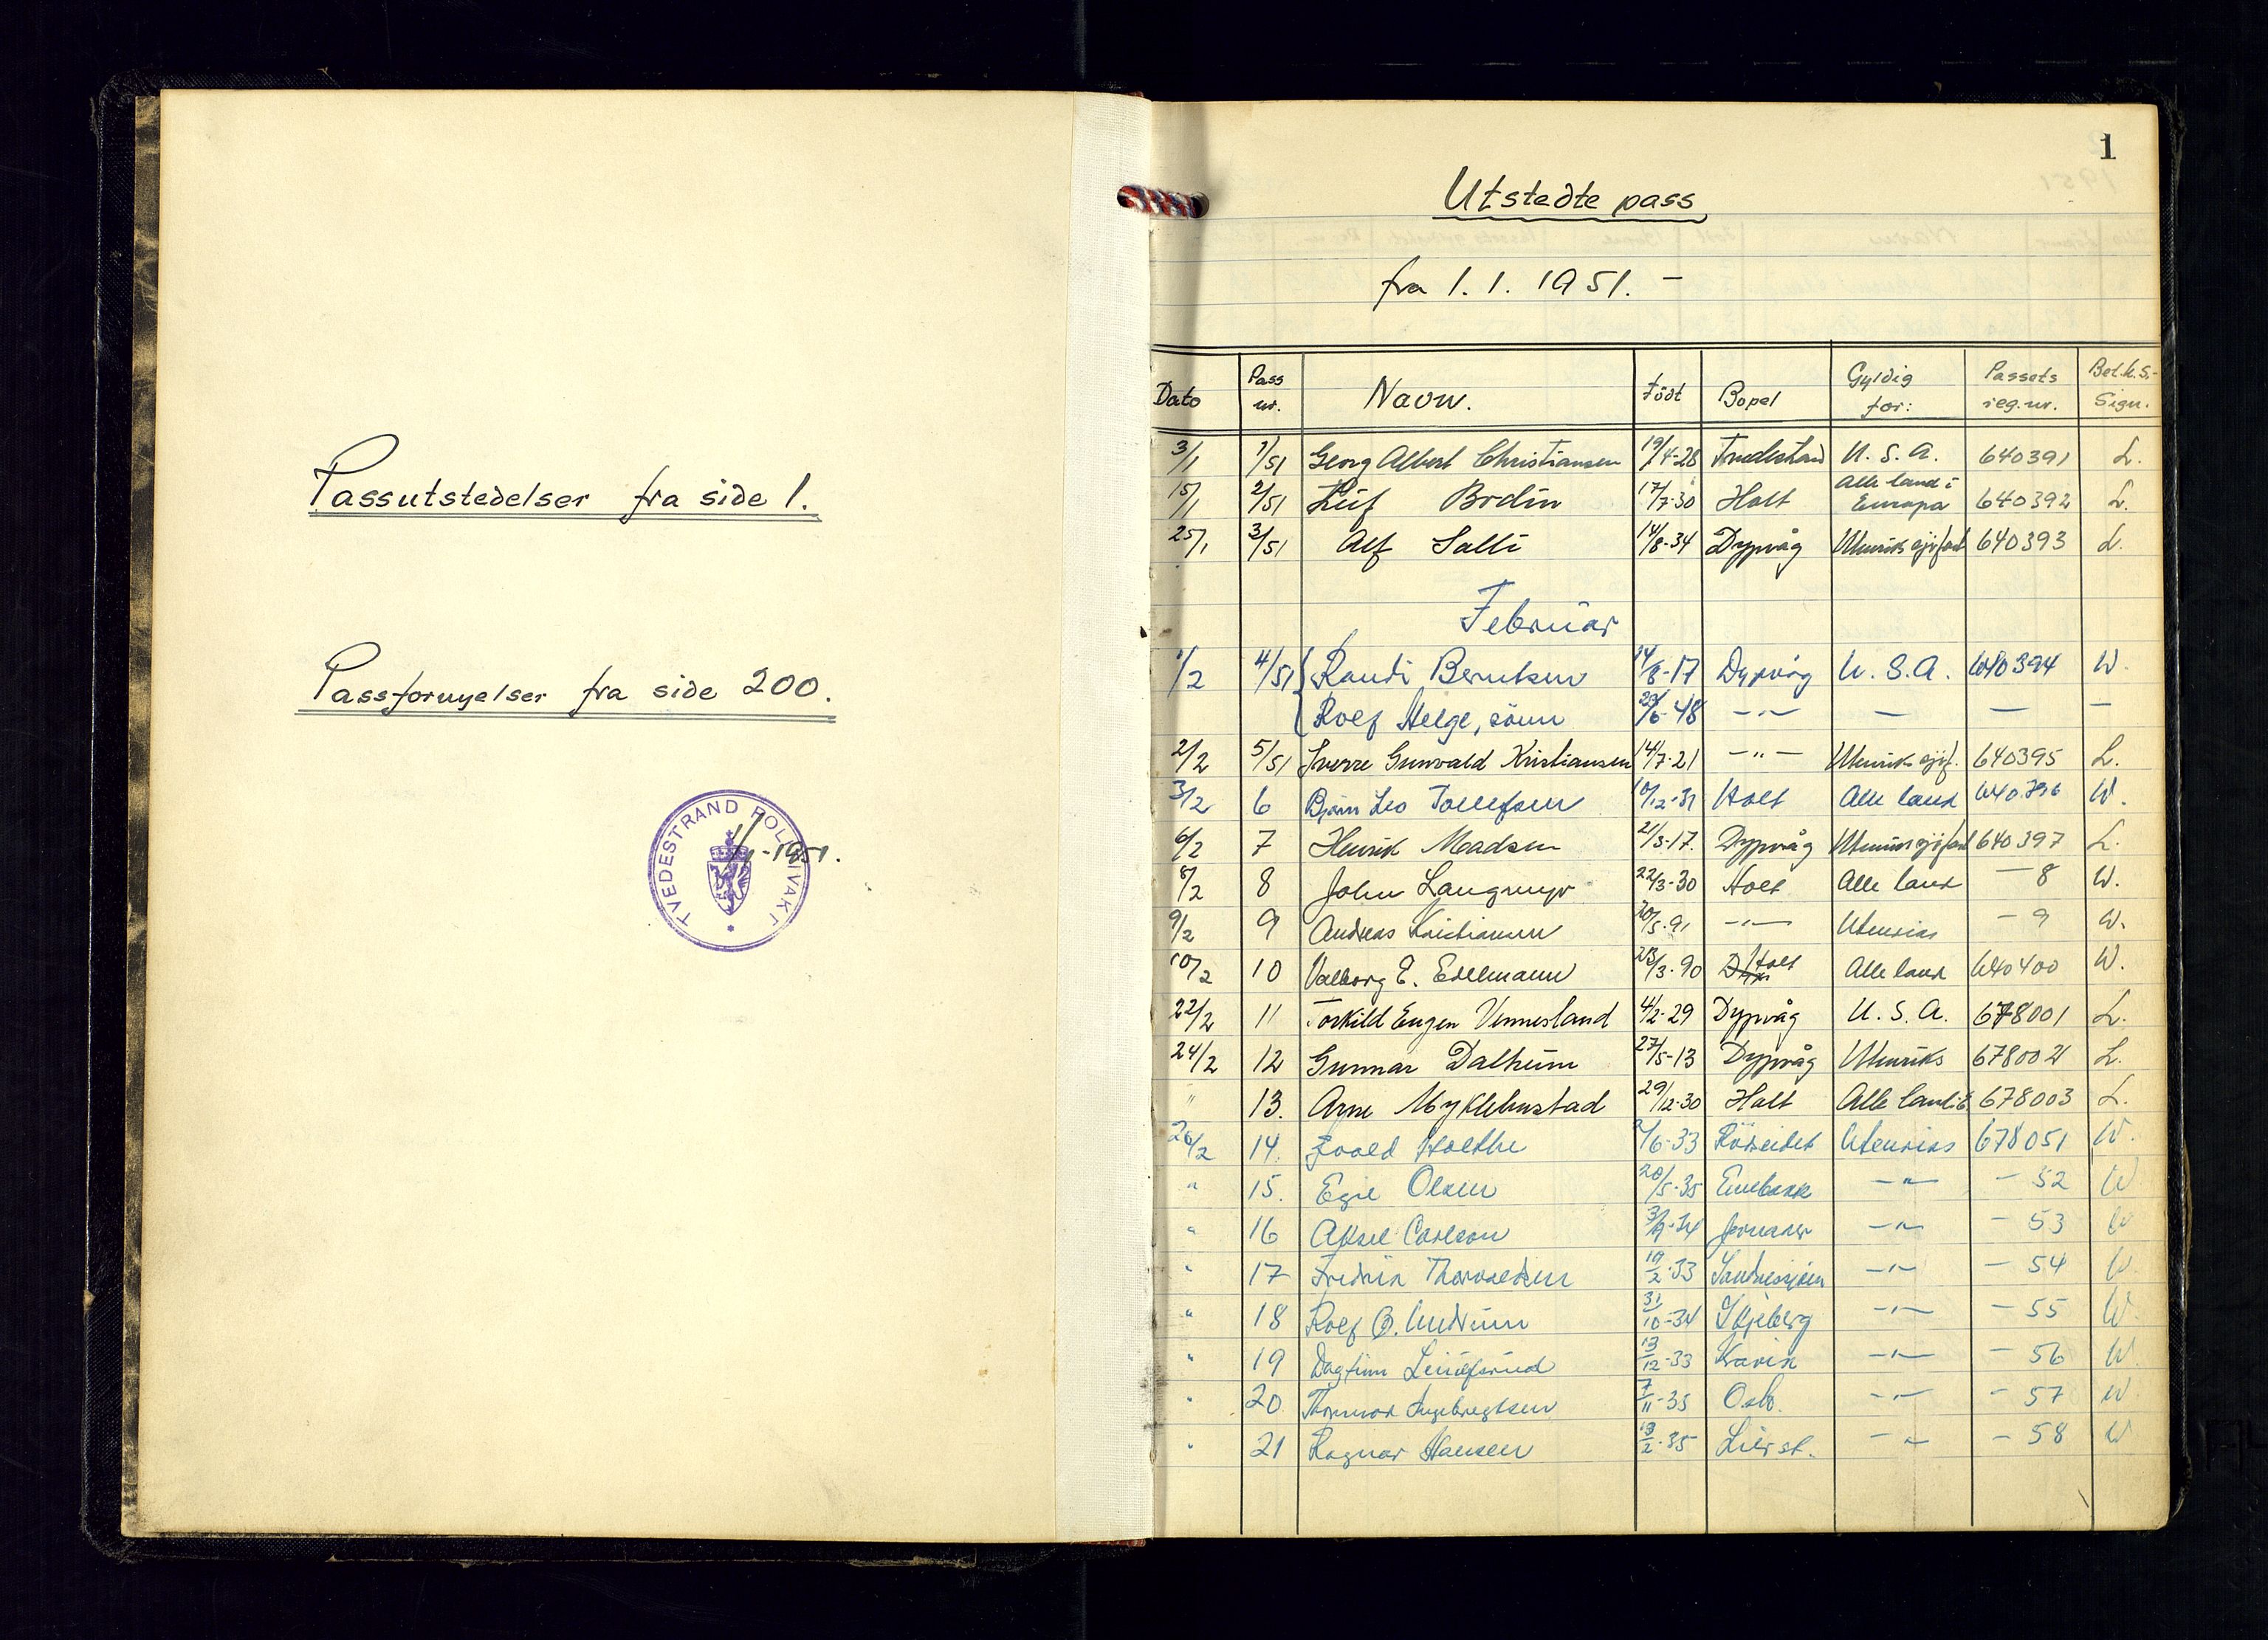 Passutstedelser fra side 1.
Passfornyelser fra side 200.
TVEDESTRAND POLITIVAKT
1/1-1951.
1
Utstedte pass
fra 1.1.1951. -
Dato Pass nr. Navn. Født Bopel Gyldig for: Passets reg.nr. Bet.k.s.- Sign.
3/1 1/51 Georg Albert Christiansen 19/4-28 U.S.A. 640391 L.
15/1 2/51 Leif Bodin 17/7-30 Holt Alle land i Europa 640392 L.
25/1 3/51 Alf Salti 14/8-34 Dypvåg Utenriks sjøfart 640393 L.
Februar
1/2 4/51 Randi Berntsen 14/8-17 Dypvåg U.S.A. 640394 W.
Rolf Helge, sønn 23/6-48 -"- — — —
2/2 5/51 Sverre Gunvald Kristiansen 14/7-21 -"- Utenriks sjøf. 640395 L.
3/2 6 Bjørn Leo Tollefsen 10/12-31 Holt Alle land 640396 W.
6/2 7 Henrik Madsen 21/3-17. Dypvåg Utenriks sjøfart 640397 L.
8/2 8 John Langmyr 22/3-30 Holt Alle land — 8 W.
9/2 9 Andreas Kristiansen 20/5-91 -"- Utenriks — 9 W.
10/2 10 Valborg E. Edelmann 23/3-90 Holt Alle land 640400 W.
22/2 11 Torkild Eugen Vennesland 4/2-29 Dypvåg U.S.A. 678001 L.
24/2 12 Gunnar Dalheim 27/5-13 Dypvåg Utenriks 678002 L.
" 13. Arne Myklebustad 29/12-30 Holt Alle land 678003 L.
26/2 14. Holthe 2/6-33 Utenriks 678051 W.
" 15. Egil Olsen 20/5-35 Enebakk -"- — 52 W
" 16 Aksel Carlson 3/9-34 Jevnaker -"- — 53 W
" 17 Fredrik Thorvaldsen 19/2-33 -"- — 54 W
" 18 Rolf O. 31/10-34 Skjeberg -"- — 55 W.
" 19 Dagfinn 13/12-33 -"- — 56 W.
" 20 Thormod Ingebregtsen 7/11-35 Oslo. -"- — 57 W
" 21 Ragnar Hansen 13/2-35 Lier st. -"- — 58 W